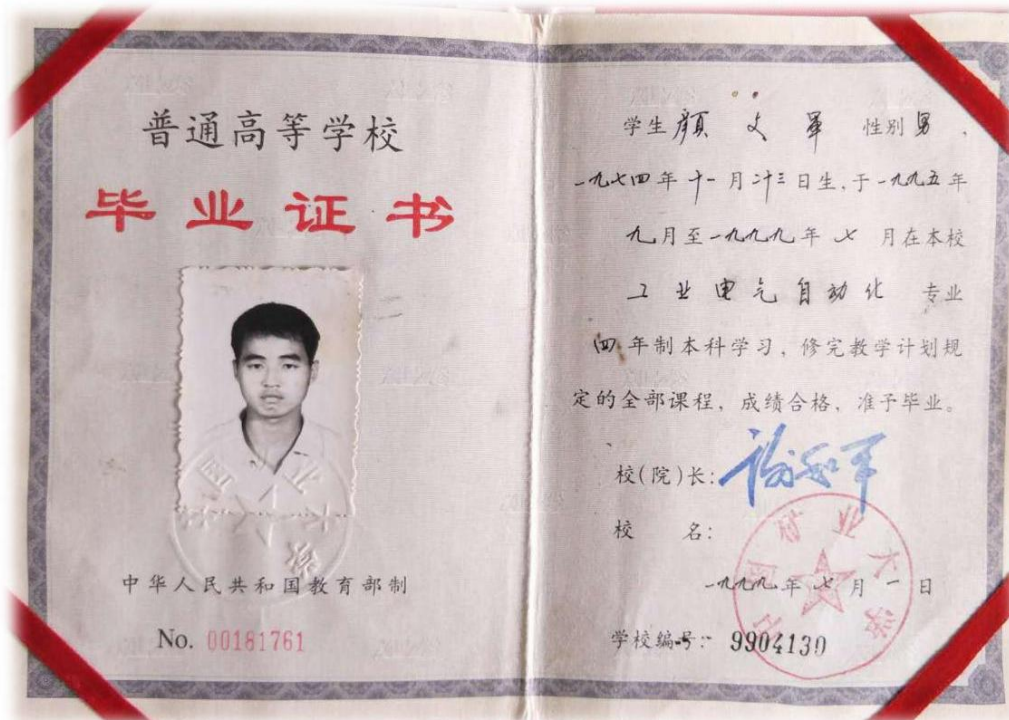 普通高等学校
毕业证书
中华人民共和国教育部制
No. 00181761
学生 颜文军 性别 男、
一九七四年十一月二十三日生,于一九九五年
九月至一九九九年七月在本校
工业电气自动化 专业
四年制本科学习,修完教学计划规
定的全部课程,成绩合格,准予毕业。
校(院)长:谢和平
校 名:
中国矿业大学
一九九九年七月一日
学校编号: 9904130